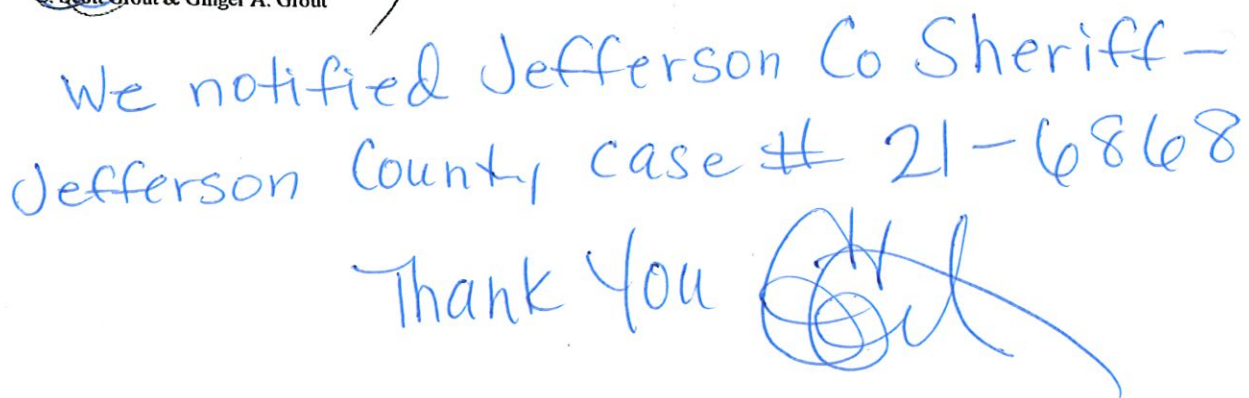 Scott Grout & Ginger A. Grout
We notified Jefferson Co Sheriff-
Jefferson County case # 21-6868
Thank You